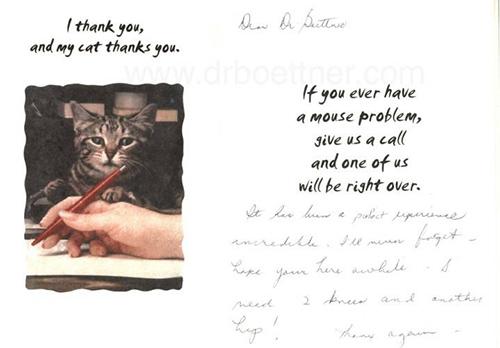 I thank you,
and my cat thanks you.
www.drboettner.com
Dear Dr
If you ever have
a mouse problem,
give us a call
and one of us
will be right over.
It has been a perfect experience
incredible. I'll never forget -
hope your here awhile. I
need 2 knees and another
hip! Thanks again -